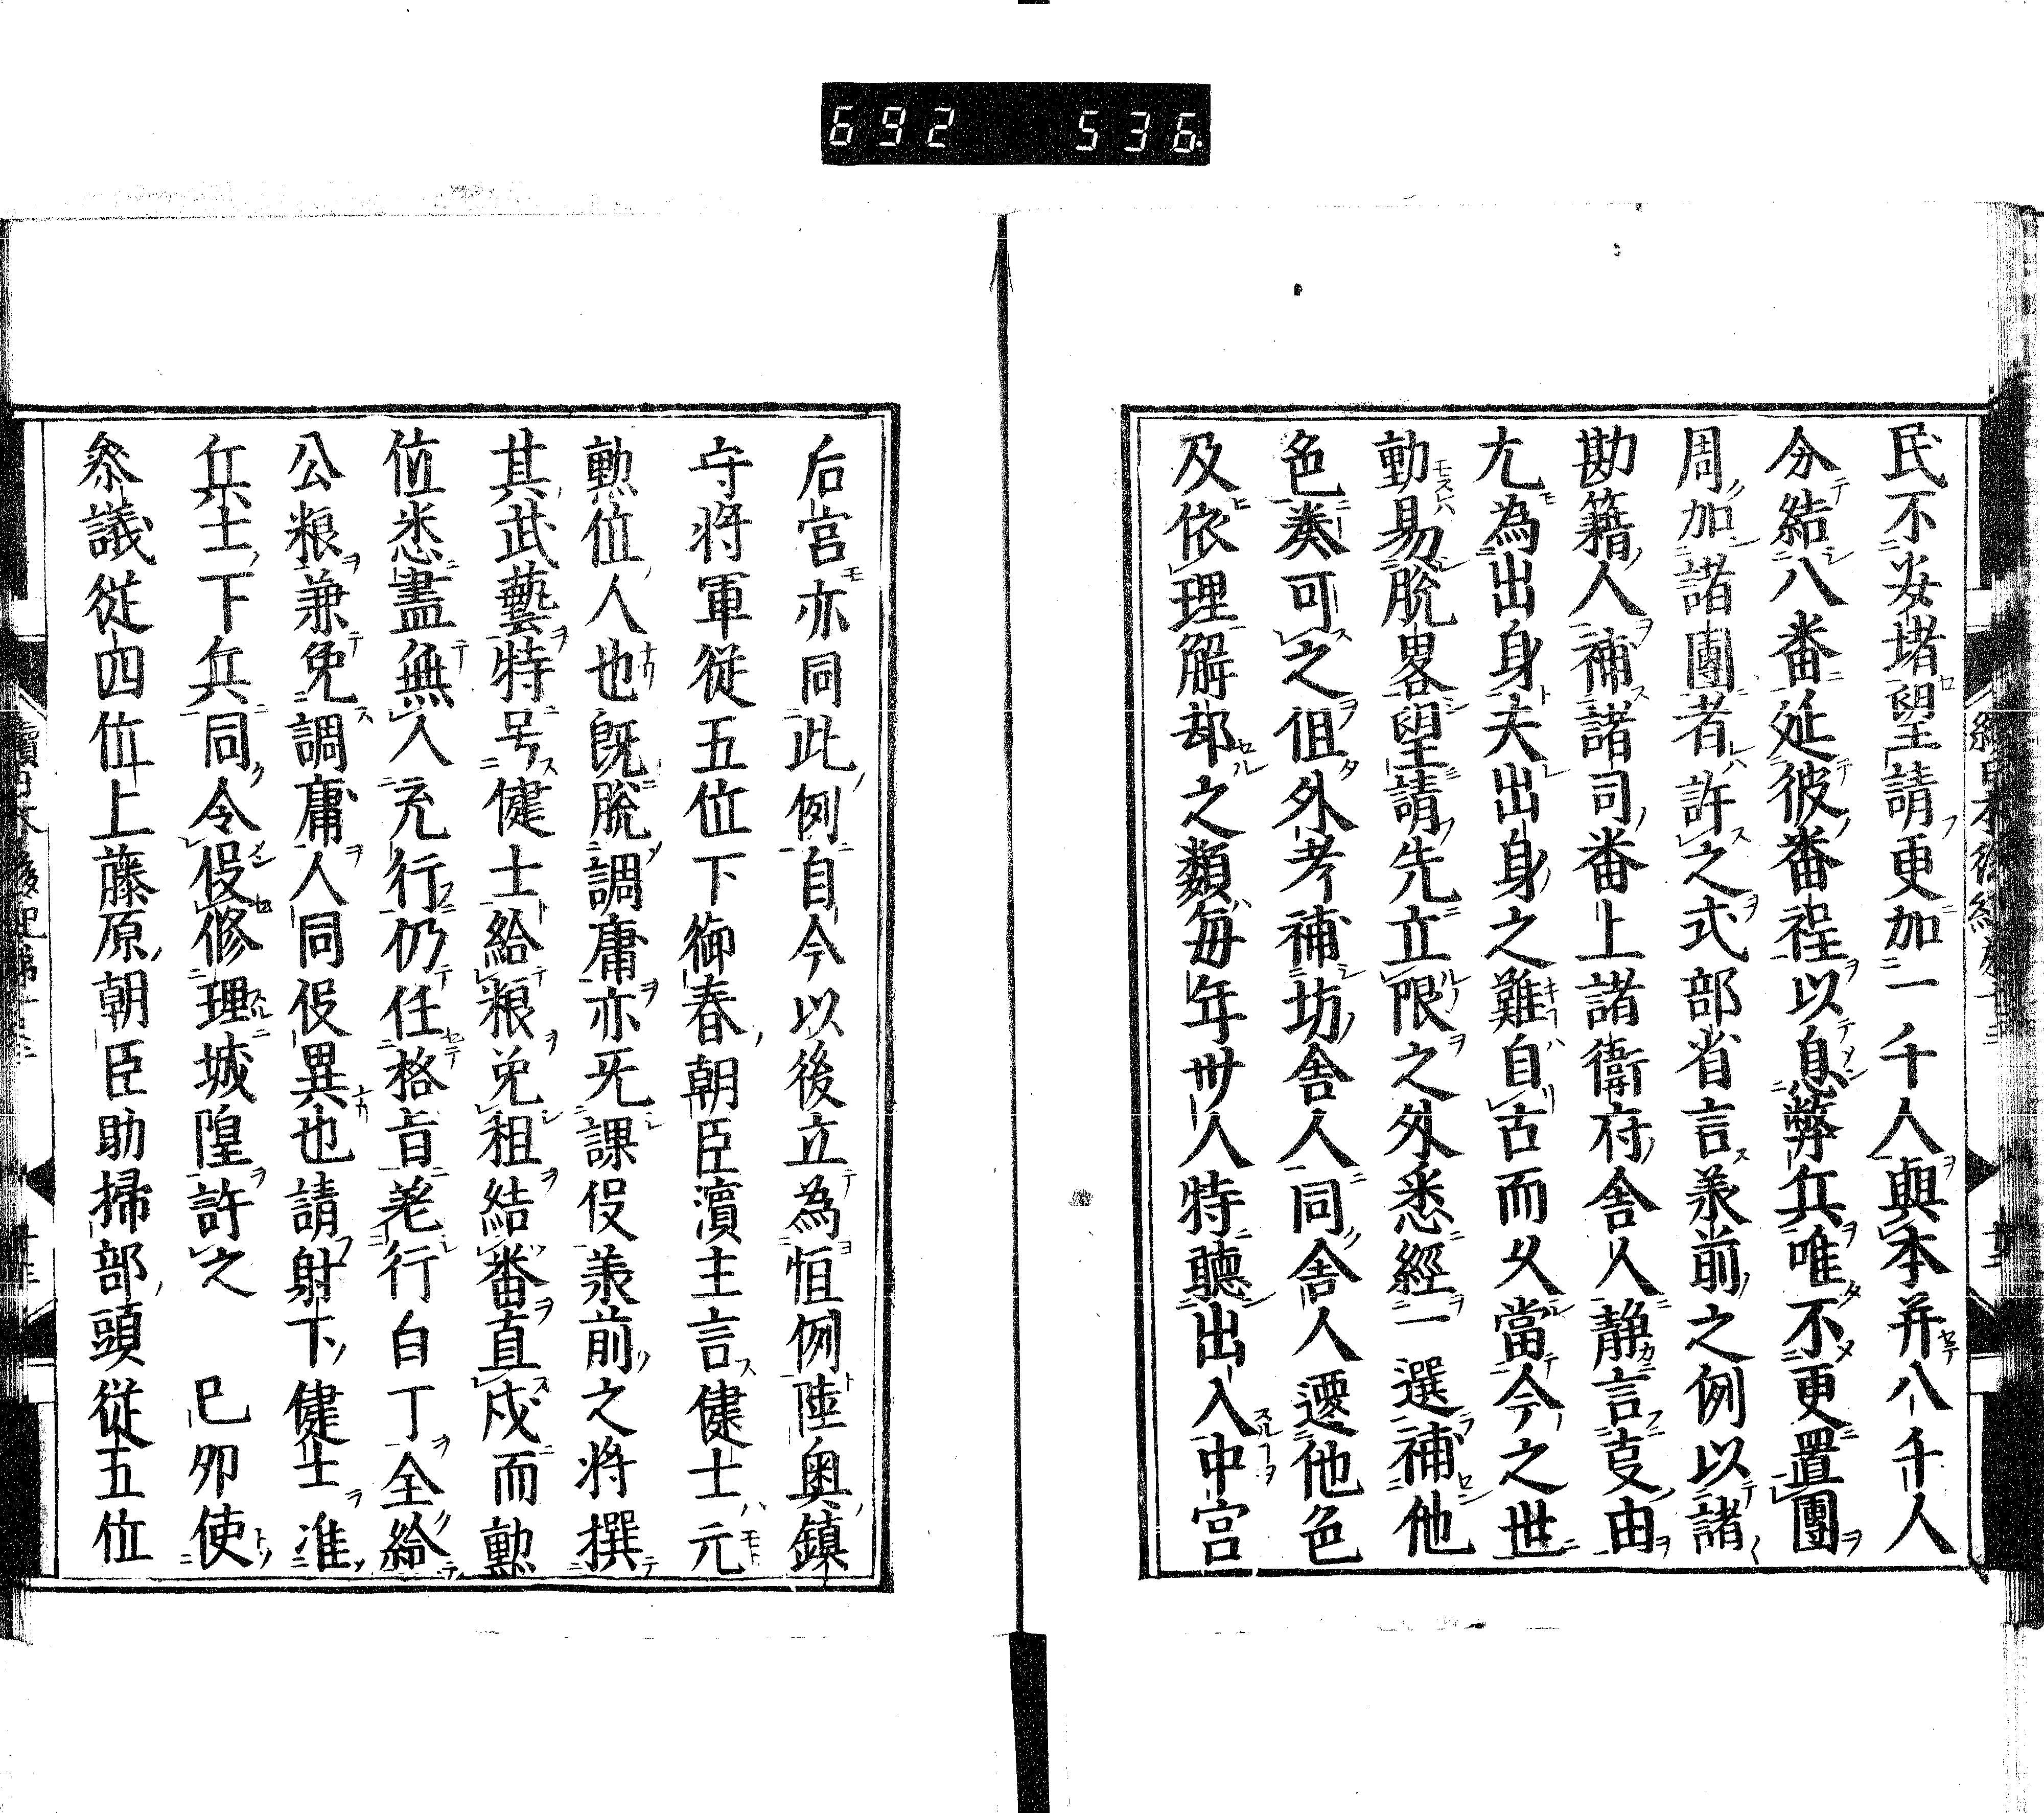 692 536
民不安堵望請更加一千人與本并八千人
分結八番延彼番程以息弊兵唯不更置團
周加諸團者許之式部省言羕前之例以諸
勘籍人補諸司番上諸衛府舎人静言㕝由
尤為出身夫出身之難自古而乆當今之世
動易脱畧望請先立限之外悉經一選補他
色奏可之但外考補坊舎人同舎人遷他色
及依理解却之類毎年丗人特聴出入中宮
后宮亦同此例自今以後立為恒例陸奥鎮
守将軍従五位下御春朝臣濵主言健士元
勲位人也既脱調庸亦旡課役羕前之将撰
其武藝特号健士給粮免租結番直戍而勲
位悉盡無人充行仍任格旨差行白丁全給
公粮兼免調庸人同役異也請射下健士准
兵士下兵同令役修理城隍許之　己卯使
叅議従四位上藤原朝臣助掃部頭従五位